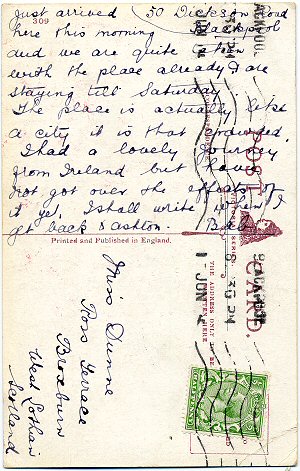 Just arrived
309
50 Dickson Road
Blackpool
here this morning
and we are quite taken
with the place already & are
staying till Saturday
The place is actually like
a city, it is that crowded.
I had a lovely journey
from Ireland but have
not got over the effects of
it yet. I shall write when I
get back to Ashton. Bob
Printed and Published in England.
POST CARD.
THE ADDRESS ONLY TO BE
WRITTEN HERE
BLACKPOOL
1 JUN
Miss Dunne
Ross Terrace
Broxburn
West Lothian
Scotland